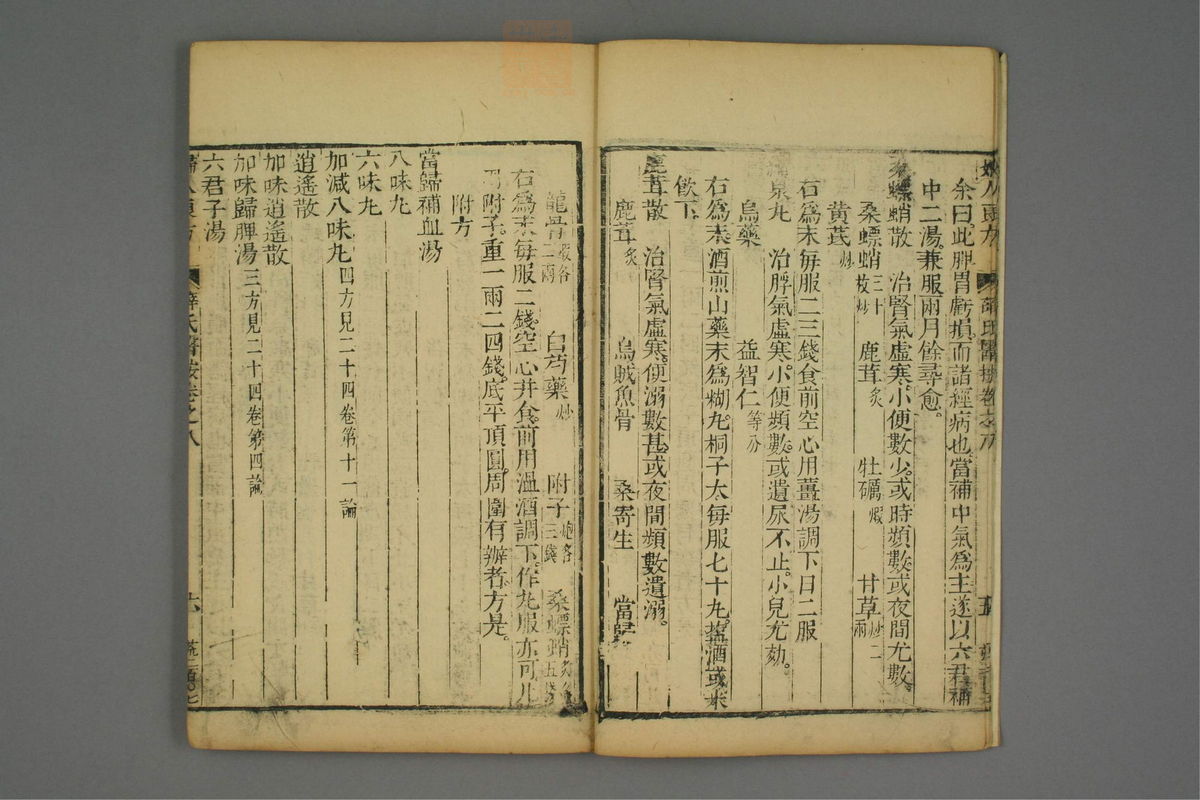 余曰此脾胃虧損而諸經病也當補中氣爲主遂以六君補
中二湯兼服兩月餘尋愈
桑螵蛸散 治腎氣虛寒小便數少或時頻數或夜間尤數
桑螵蛸三十枚炒 鹿茸炙 牡礪煆 甘草炒二兩
黄芪炒
右爲末毎服二三錢食前空心用薑湯調下日二服
泉丸 治脬氣虛寒小便頻數或遺尿不止小兒尤効
烏藥 益智仁等分
右爲末酒煎山藥末爲糊丸桐子大毎服七十丸酒或米
飲下
鹿茸散 治腎氣虛寒便溺數甚或夜間頻數遺溺
鹿茸炙 烏賊魚骨 桑寄生 當歸
龍骨煆各二兩 白芍藥炒 附子炮各三錢 桑螵蛸炙五錢
右爲末毎服二錢空心并食前用溫酒調下作丸服亦可凡
用附子重一兩二四錢底平頂圓周圍有辦者方是
附方
當歸補血湯
八味丸
六味丸
加減八味丸四方見二十四卷第十一論
逍遙散
加味逍遙散
加味歸脾湯三方見二十四卷第四論
六君子湯
薛氏醫按卷之八